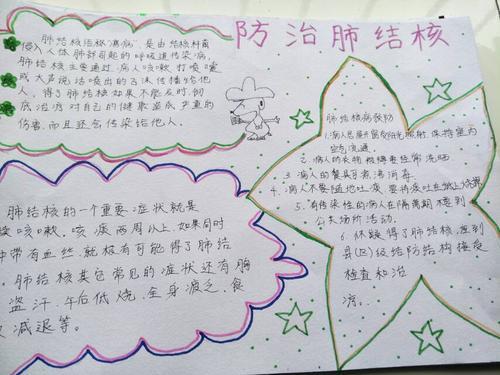 防治肺结核
肺结核结核"痨病",是由结核杆菌
侵入人体肺部引起的呼吸道传染病,
肺结核主要通过病人咳嗽、打喷嚏
或大声说话喷出的飞沫传播给他
人,得了肺结核如果不能及时、彻
底治疗,对自己的健康造成严重的
伤害,而且还会传染给他人。
肺结核的一个重要症状就是
咳嗽、咳痰两周以上,如果同时
中带有血丝,就极有可能得了肺结
肺结核其它常见的症状还有胸
盗汗、午后低烧、全身疲乏、食
减退等。
肺结核病预防
1.病人居室
照射,保持室内
空气流通。
2.病人的衣物、被褥要经常洗晒
3.病人的餐具要煮沸消毒。
4.病人不要随地吐痰,要将痰吐在纸上烧
5.有传染性的病人在隔离期
公共场所活动。
6.怀疑得了肺结核,应到
县(区)级结防结构接受
检查和治
疗。